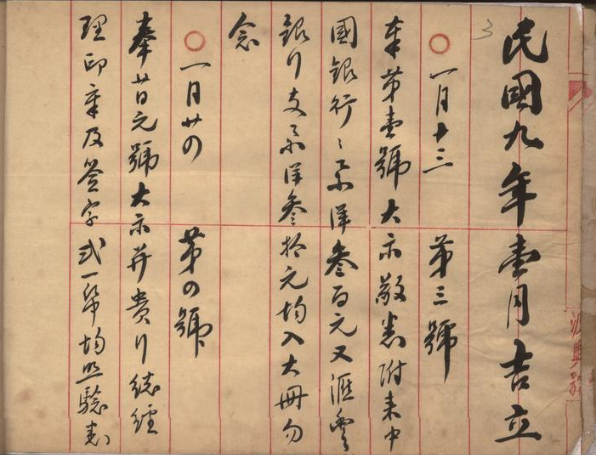 民國九年壹月吉立
3
一月十三 第三號
奉第壹號大示敬悉附来中
國銀行〻票洋叁百元又滙豐
銀行支票洋叁拾元均入大冊勿
念
一月廿四 第四號
奉廿日元號大示并貴行總經
理印章及簽字式一紙均照驗悉